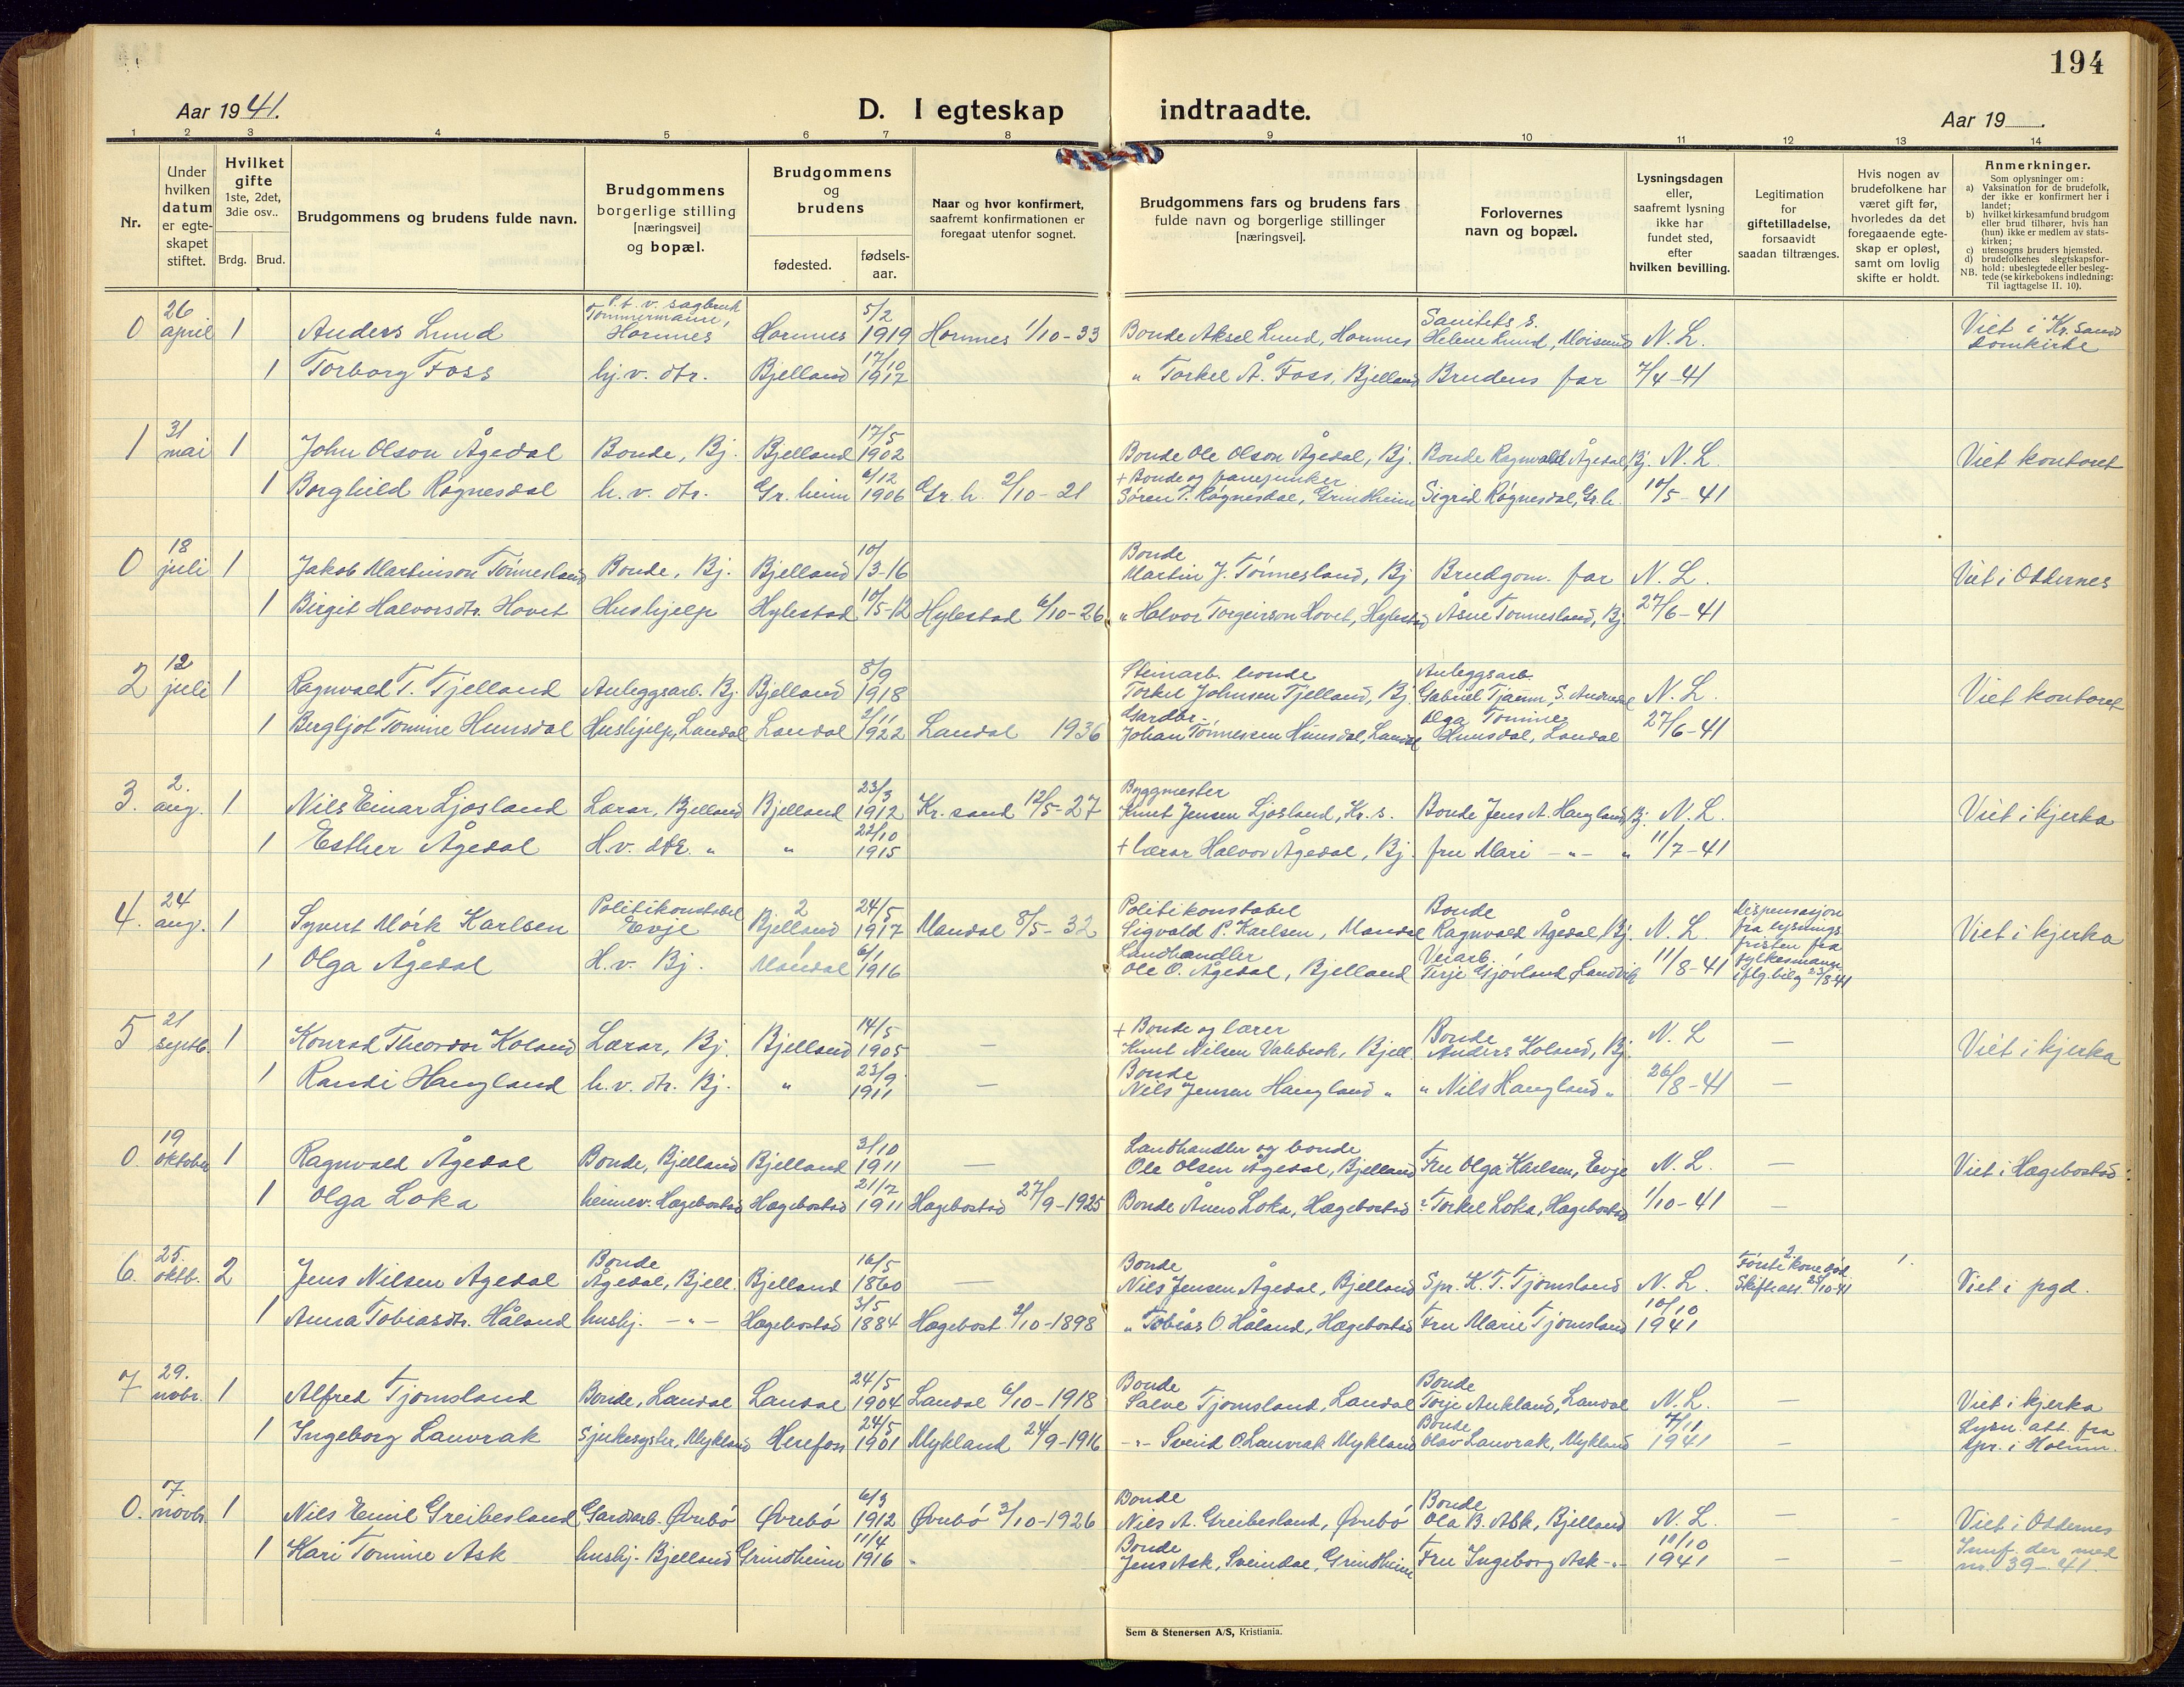 194
Aar 1941.
D. I egteskap indtraadte.
Aar 19
1 2 3 4 5 6 7 8 9 10 11 12 13 14
Nr.
Under hvilken datum er egteskapet stiftet.
Hvilket gifte 1ste, 2det, 3die osv..
Brdg. Brud.
Brudgommens og brudens fulde navn.
Brudgommens borgerlige stilling [næringsvei] og bopæl.
Brudgommens og brudens
fødested. fødselsaar.
Naar og hvor konfirmert, saafremt konfirmationen er foregaat utenfor sognet.
Brudgommens fars og brudens fars fulde navn og borgerlige stillinger [næringsvei].
Forlovernes navn og bopæl.
Lysningsdagen eller, saafremt lysning ikke har fundet sted, efter hvilken bevilling.
Legitimation for giftetilladelse, forsaavidt saadan tiltrænges.
Hvis nogen av brudefolkene har været gift før, hvorledes da det foregaaende egteskap er opløst, samt om lovlig skifte er holdt.
Anmerkninger.
Som oplysninger om:
a) Vaksination for de brudefolk, der ikke er konfirmert her i landet;
b) hvilket kirkesamfund brudgom eller brud tilhører, hvis han (hun) ikke er medlem av statskirken;
c) utensogns bruders hjemsted.
d) brudefolkenes slegtskapsforhold: ubeslegtede eller beslegtede (se kirkebokens indledning: NB. Til iagttagelse II. 10).
0 26 april 1 Anders Lund P.t. v. sagbruk Tømmermann, Hornnes Hornnes 5/2 1919 Hornnes 1/10-33 Bonde Aksel Lund, Hornnes Sanitets s. Helene Lund, Moisund N. L. Viet i Kr.sands domkirke
1 Torborg Foss hj. v. dtr. Bjelland 17/10 1917 " Torkel Å. Foss, Bjelland Brudens far 7/4-41
1 31 mai 1 John Olson Ågedal Bonde, Bj. Bjelland 17/5 1902 Bonde Ole Olson Ågedal, Bj. Bonde Ragnvald Ågedal, Bj. N. L. Viet kontoret
1 Borghild Røgnesdal h. v. dtr. Gr. heim 6/12 1906 Gr. h. 2/10-21 + Bonde og fanejunker Søren T. Røgnesdal, Grindheim Sigrid Røgnesdal, Gr. h. 10/5-41
0 18 juli 1 Jakob Martinson Tønnesland Bonde, Bj. Bjelland 10/3-16 Bonde Martin J. Tønnesland, Bj Brudgom. far N. L. Viet i Oddernes
1 Birgit Halvorsdtr. Hovet Hushjelp Hylestad 10/5-12 Hylestad 6/10-26 " Halvor Torgeirson Hovet, Hylestad Åsne Tønnesland, Bj 27/6-41
2 12 juli 1 Ragnvald T. Tjelland Anleggsarb. Bj. Bjelland 8/9 1918 Steinarb. bonde Torkel Johnsen Tjelland, Bj. Anleggsarb. Gabriel Tjamm, S. Audnedal N. L. Viet kontoret
1 Bergljot Tomine Hunsdal Hushjelp, Laudal Laudal 2/11 1922 Laudal 1936 Gardbr. Johan Tønnessen Hunsdal, Laudal Olga Tomine Hunsdal, Laudal 27/6-41
3. 2. aug. 1 Nils Einar Ljosland Lærar, Bjelland Bjelland 23/3 1912 Kr. sand 12/5-27 Byggmester Knut Jensen Ljosland, Kr. s. Bonde Jens A. Haugland, Bj. N. L. Viet i kjerka
1 Esther Ågedal H.v. dtr. " " 22/10 1915 + lærar Halvor Ågedal, Bj. fru Mari -"- " 11/7-41
4. 24 aug. 1 Syvert Mørk Karlsen Politikonstabel Evje 2 Bjelland 24/5 1917 Mandal 8/5-32 Politikonstabel Sigvald P. Karlsen, Mandal Bonde Ragnvald Ågedal, Bj. N. L. Dispensasjon fra lysningsfristen fra fylkesmann iflg. bilg 23/8-41 Viet i kjerka
1 Olga Ågedal H.v. Bj. 1 Mandal 6/1 1916 Landhandler Ole O. Ågedal, Bjelland Veiarb. Terje Gjøvland, Landvik 11/8-41
5 21 septb. 1 Konrad Theodor Koland Lærar, Bj. Bjelland 14/5 1905 — + Bonde og lærer Knut Nilsen Valebrok, Bjell. Bonde Anders Koland, Bj. N. L — Viet i kjerka
1 Randi Haugland h. v. dtr. Bj. " 23/9 1911 — Bonde Nils Jensen Haugland " " Nils Haugland " 26/8-41 —
0. 19 oktober 1 Ragnvald Ågedal Bonde, Bjelland Bjelland 3/10 1911 — Landhandler og bonde Ole Olsen Ågedal, Bjelland Fru Olga Karlsen, Evje N. L. — Viet i Hægebostad.
1 Olga Loka heimev. Hægebostad Hægebostad 21/7 1911 Hægebostad 27/9-1925 Bonde Ånen Loka, Hægebostad Torkel Loka, Hægebostad 1/10-41 —
6. 25. oktb. 2 Jens Nilsen Ågedal Bonde Ågedal, Bjell. Bjelland 16/5 1860 — Bonde Nils Jensen Ågedal, Bjelland Spr. K. T. Tjomsland N. L. 2. Første kone død Skifteatt. 25/10-41 1. Viet i pgd.
1 Anna Tobiasdtr. Håland hushj. -"- Hægebostad 3/5 1884 Hægebost. 2/10-1898 " Tobias O Håland, Hægebostad Fru Marie Tjomsland 10/10 1941
7 29. novbr. 1 Alfred Tjomsland Bonde, Laudal Laudal 24/5 1904 Laudal 6/10-1918 Bonde Salve Tjomsland, Laudal Bonde Torje Aukland, Laudal N. L. — Viet i kjerka
1 Ingeborg Lauvrak Sjukesyster, Mykland Herefoss 24/5 1901 Mykland 24/9-1916 -"- Sveind O Lauvrak Mykland Bonde Olav Lauvrak, Mykland 7/11 1941 — Lysn. att. fra spr. i Holum.
0. 7. novbr 1 Nils Emil Greibesland Gardsarb. Øvrebø Øvrebø 6/3 1912 Øvrebø 3/10-1926 Bonde Nils A. Greibesland, Øvrebø Bonde Ola B. Ask, Bjelland N. L. — - Viet i Oddernes
1 Kari Tomine Ask hushj. Bjelland Grindheim 11/4 1916 " Bonde Jens Ask, Sveindal, Grindheim Fru Ingeborg Ask -"- 10/10 1941 — — Innf. der med nr. 39-41.
Sem & Stenersen A/S, Kristiania.